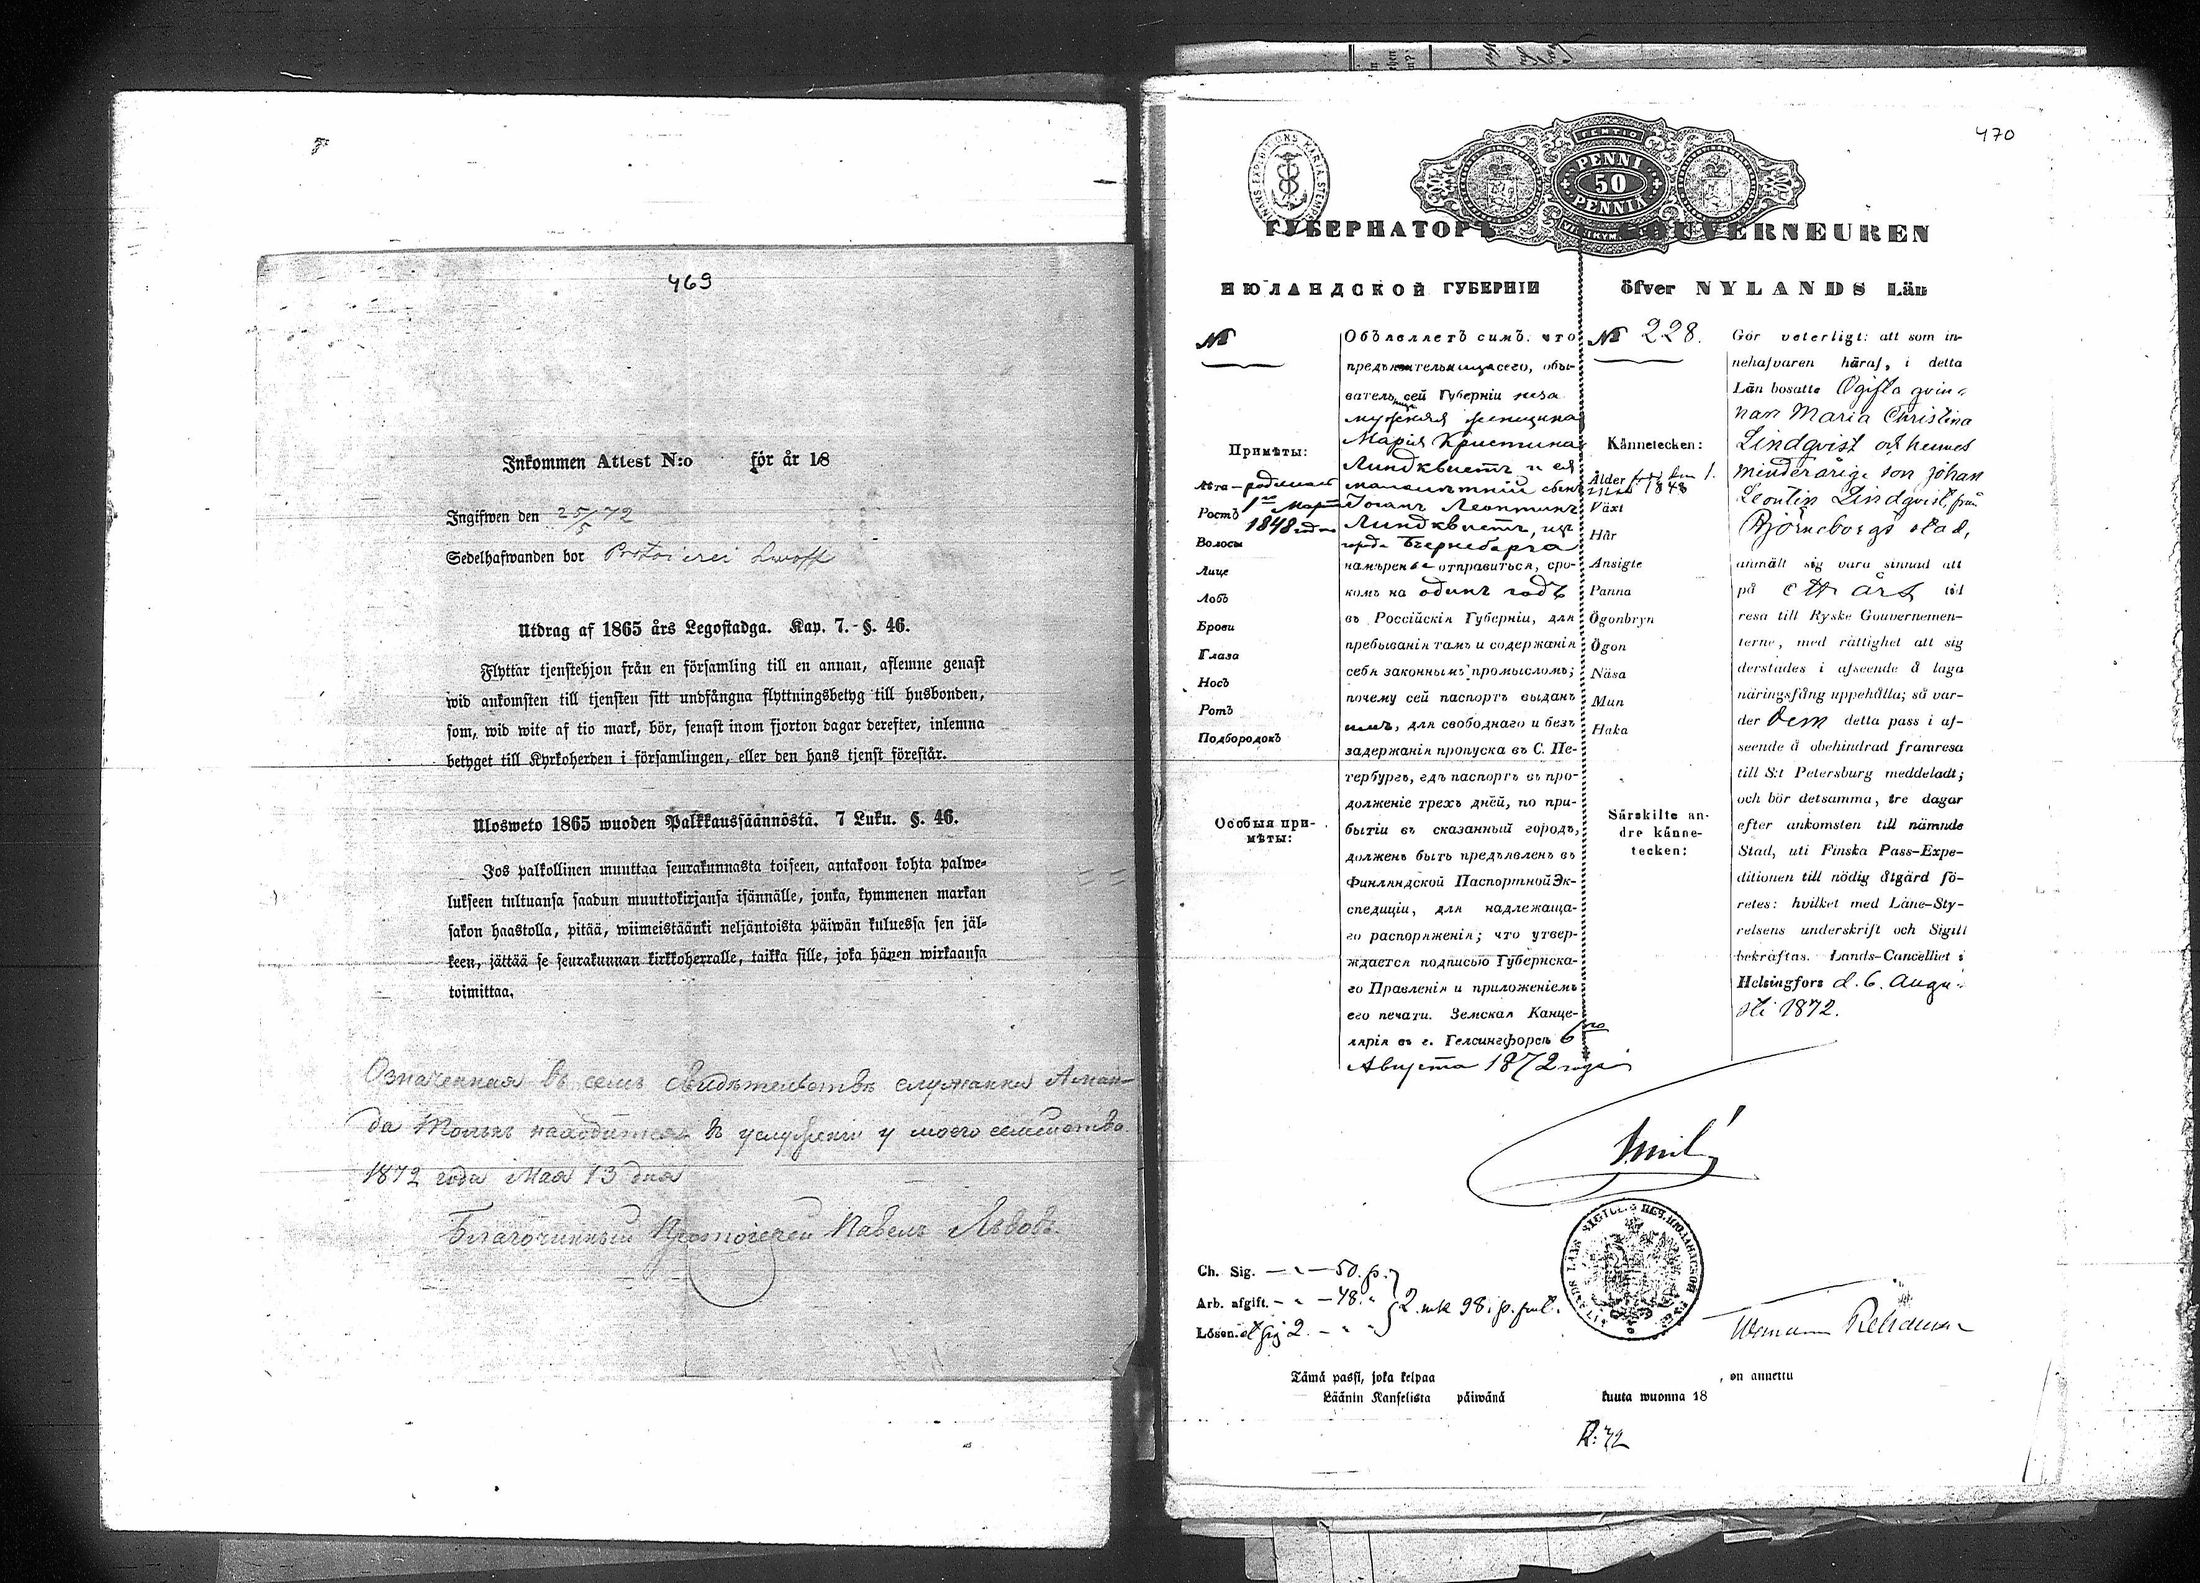 469
Inkommen Attest N:o för år 18
Ingifwen den 25/5 72
Sedelhafwanden bor Protoierei Lwoff
Utdrag af 1865 års Legostadga. Kap. 7. §. 46.
Flyttar tjenstehjon från en församling till en annan, aflemne genast
wid ankomsten till tjensten sitt undfångna flyttningsbetyg till husbonden,
som, wid wite af tio mark, bör, senast inom fjorton dagar derefter, inlemna
betyget till Kyrkoherden i församlingen, eller den hans tjenst förestår.
Ulosweto 1865 wuoden Palkkaussäännöstä. 7 Luku. §. 46.
Jos palkollinen muuttaa seurakunnasta toiseen, antakoon kohta palwe-
lukseen tultuansa saadun muuttokirjansa isännälle, jonka, kymmenen markan
sakon haastolla, pitää, wiimeistäänki neljäntoista päiwän kuluessa sen jäl-
keen, jättää se seurakunnan kirkkoherralle, taikka sille, joka hänen wirkaansa
toimittaa.
Означенная въ семъ свидѣтельствѣ служанка Аман-
да находится въ услуженіи у моего семейства
1872 года Мая 13 дня
Благочинный Протоіерей Павелъ Львовъ
470
FEMTIO
PENNI
50
PENNIÄ
ГУБЕРНАТОРЪ
НЮЛАНДСКОЙ ГУБЕРНІИ
№
Примѣты:
Лѣта – родилась
Ростъ 1го Марта
1848 года
Волосы
Лице
Лобъ
Брови
Глаза
Носъ
Ротъ
Подбородокъ
Особыя при-
мѣты:
Объявляетъ симъ, что
предъявительница сего, обы-
вательница сей Губерніи неза
мужняя женщина
Марія Кристина
Линдквистъ и ея
малолѣтній сынъ
Іоганъ Леонтинъ
Линдквистъ, изъ
города Бьернеборга
намѣрены отправиться, сро-
комъ на одинъ годъ
въ Россійскія Губерніи, для
пребыванія тамъ и содержанія
себя законнымъ промысломъ;
почему сей паспортъ выданъ
имъ, для свободнаго и безъ
задержанія пропуска въ С. Пе-
тербургъ, гдѣ паспортъ въ про-
долженіе трехъ дней, по при-
бытіи въ сказанный городъ,
долженъ быть предъявленъ въ
Финляндской Паспортной Эк-
спедиціи, для надлежаща-
го распоряженія; что утвер-
ждается подписью Губернска-
го Правленія и приложеніемъ
его печати. Земская Канце-
лярія въ г. Гельсингфорсѣ 6го
Августа 1872 года
GOUVERNEUREN
öfver NYLANDS Län
№ 228.
Kännetecken:
Ålder 1848
Växt
Hår
Ansigte
Panna
Ögonbryn
Ögon
Näsa
Mun
Haka
Särskilte an-
dre känne-
tecken:
Gör veterligt: att som in-
nehafvaren häraf, i detta
Län bosatte Ogifta qvin-
nan Maria Christina
Lindqvist och hennes
minderårige son Johan
Leontin Lindqvist, från
Björneborgs stad,
anmält sig vara sinnad att
på ett års tid
resa till Ryske Gouvernemen-
terne, med rättighet att sig
derstädes i afseende å laga
näringsfång uppehålla; så var-
der dem detta pass i af-
seende å obehindrad framresa
till S:t Petersburg meddeladt;
och bör detsamma, tre dagar
efter ankomsten till nämnde
Stad, uti Finska Pass-Expe-
ditionen till nödig åtgärd fö-
retes: hvilket med Läne-Sty-
relsens underskrift och Sigill
bekräftas. Lands-Cancelliet i
Helsingfors d. 6. Augu-
sti 1872.
Ch. Sig. — „ — 50. p.
Arb. afgift. — „ — 48. „
Lösen. 2. — „
2. mk 98. p.
Tämä passi, joka kelpaa , on annettu
Läänin Kanselista päiwänä kuuta wuonna 18
R: 72